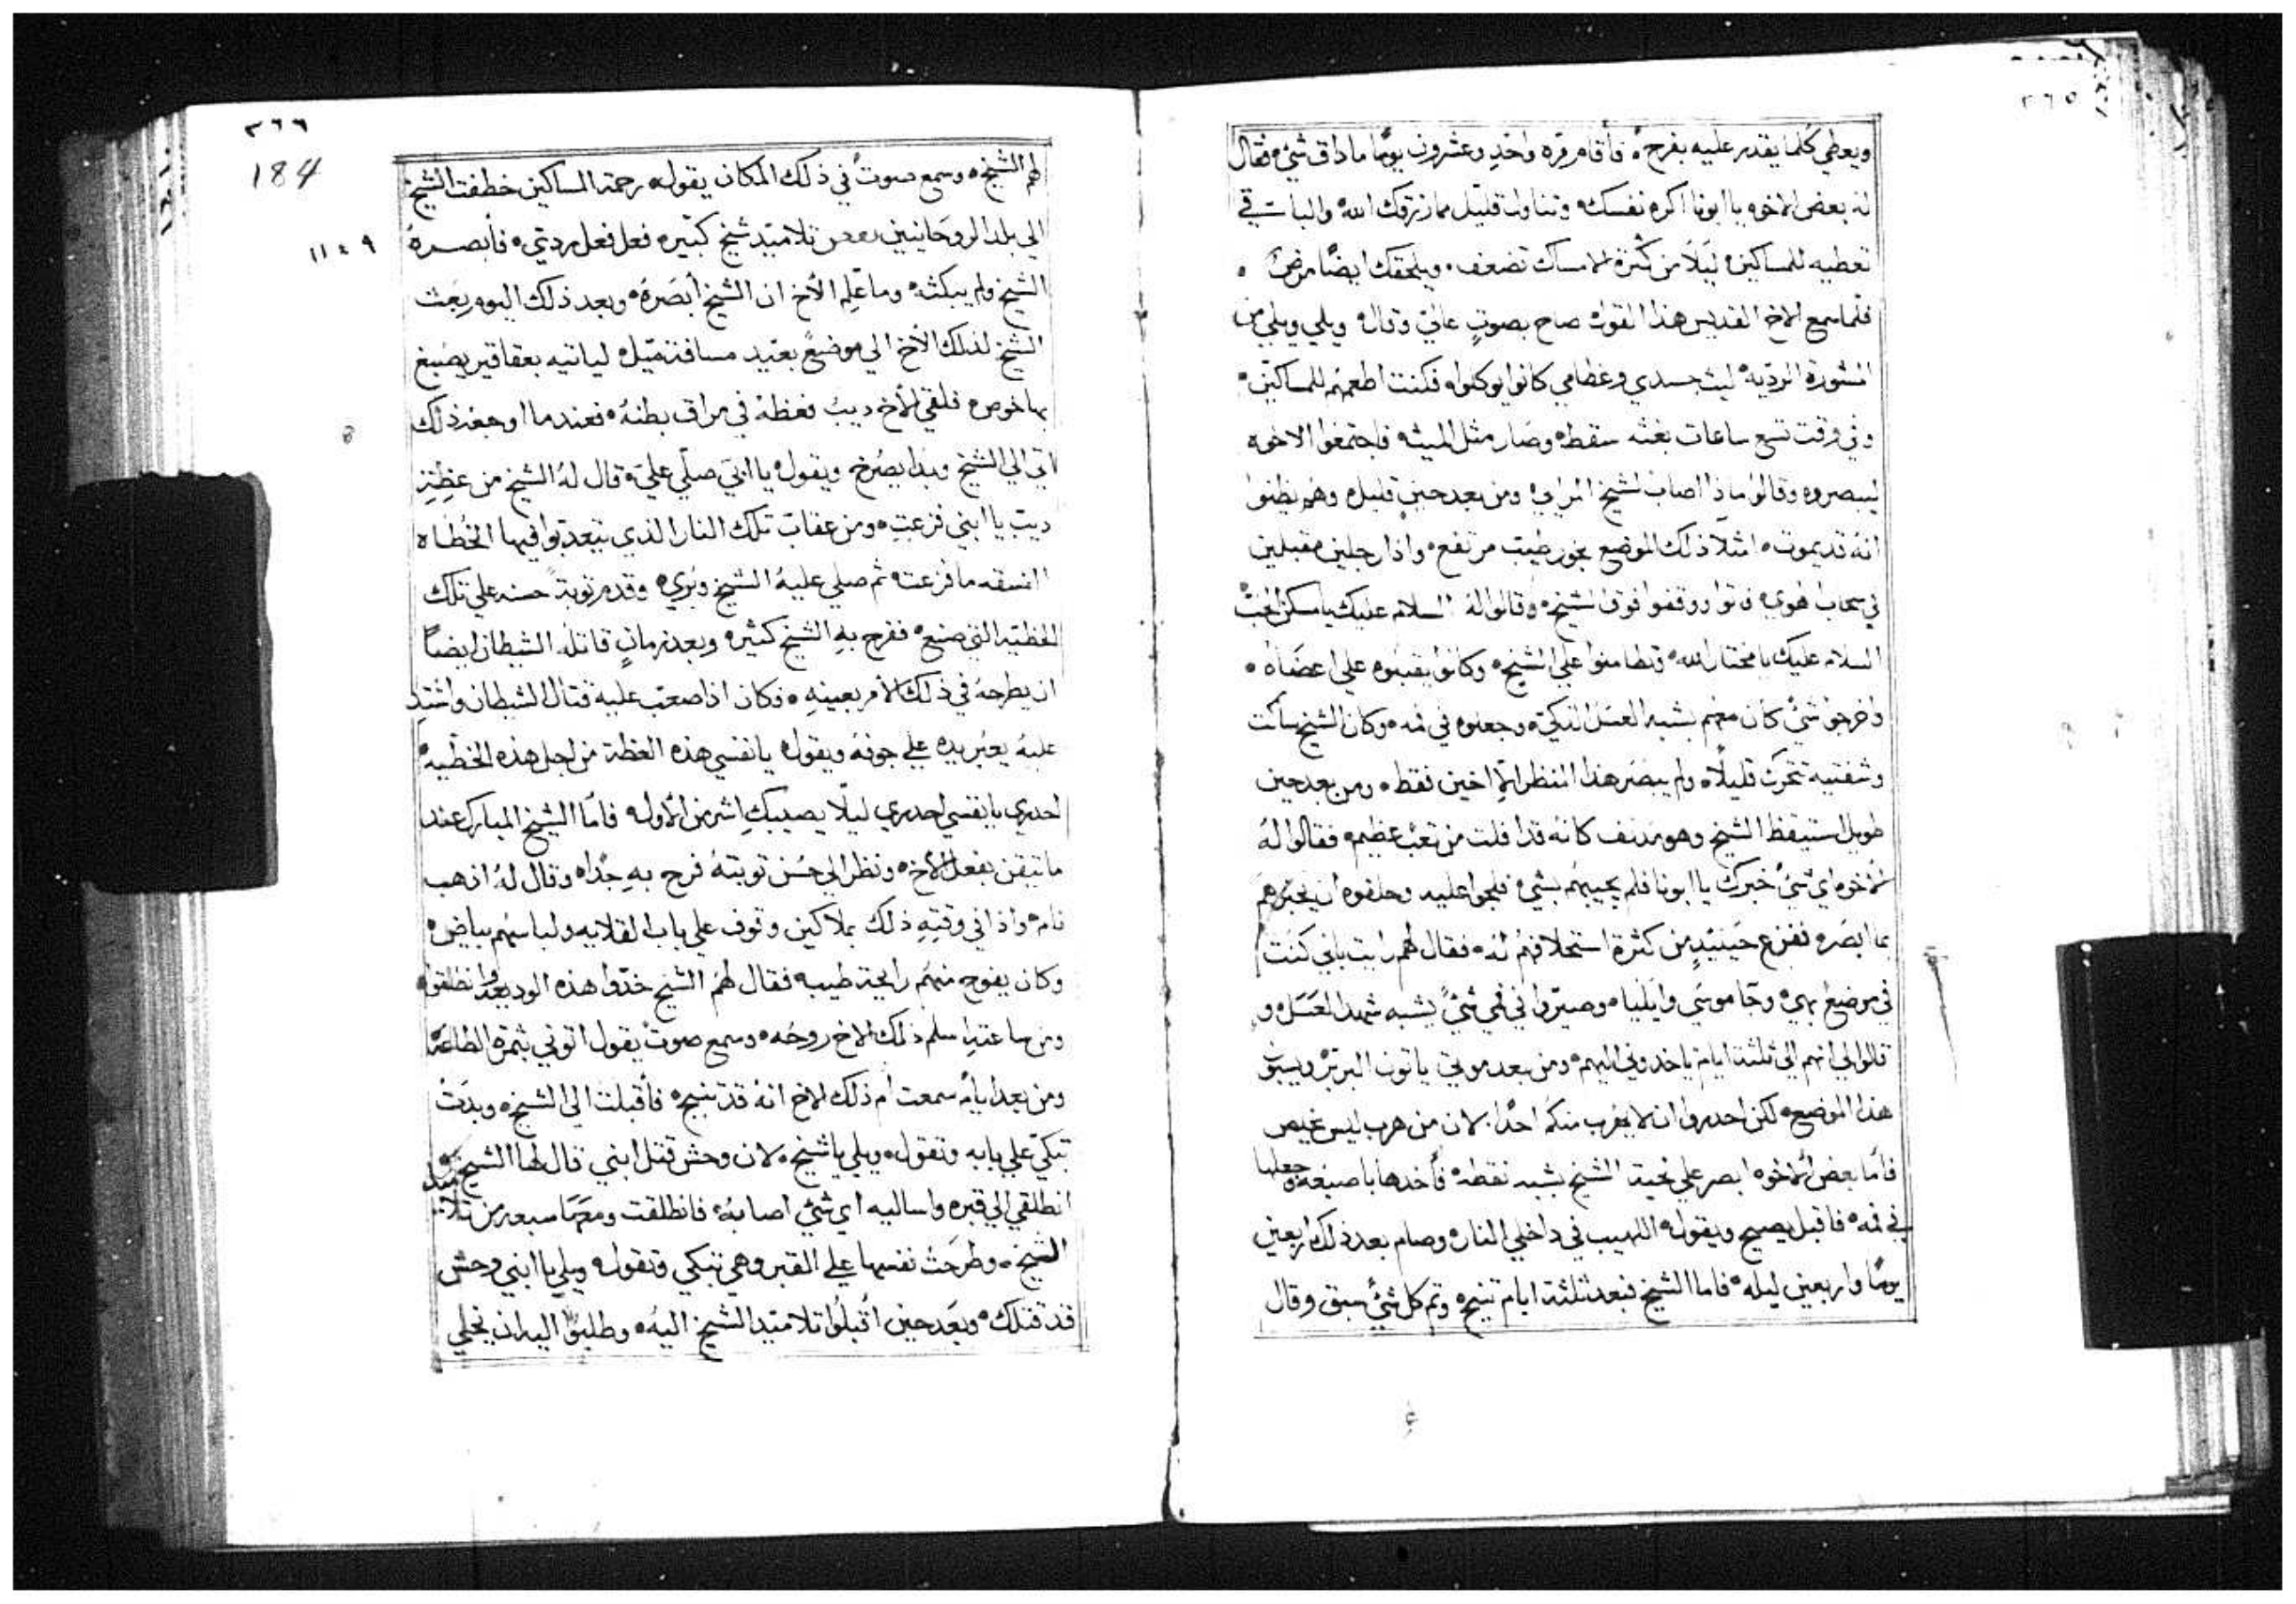 ٣٦٥
ويعطي كلما يقدر عليه بفرح ۰ فاقام مره واحد وعشرون يومًا ما داق شيء ۰ فقال
له بعض الاخوه يا ابونا اكره نفسك ۰ وتناول قليل مما رزقك الله ۰ والباقي
تعطيه للمساكين ۰ ليلا من كثرة الامساك تضعف ۰ ويلحقك ايضًا مرض ۰
فلما سمع الاخ القديس هذا القول ۰ صاح بصوتٍ عالي وقال ۰ ويلي ويلي من
المشورة الرديه ۰ ليت جسدي وعظامي كانوا يوكلوا ۰ فكنت اطعمهم للمساكين ۰
وفي وقت تسع ساعات بغته سقط ۰ وصار مثل الميت ۰ فاجتمعوا الاخوه
ليبصروه وقالوا ماذا اصاب الشيخ ۰ ومن بعد حين قليل ۰ وهم يظنوا
انه قد يموت ۰ امتلا ذلك الموضع بخور طيب مرتفع ۰ واذا رجلين مقبلين
في سحاب الهوي ۰ فاتوا ووقفوا فوق الشيخ ۰ وقالوا له السلام عليك يا مسكن الحب ۰
السلام عليك يا مختار الله ۰ وتطامنوا علي الشيخ ۰ وكانوا يقبلوه علي اعضاه ۰
واخرجوا شيء كان معهم بشبه العسل ۰ وجعلوه في فمه ۰ وكان الشيخ ساكت
وشفتيه تتحرك قليلًا ۰ ولم يبصر هذا المنظر الا اخين فقط ۰ ومن بعد حين
طويل استيقظ الشيخ وهو كانه قد افلت من تعب عظيم ۰ فقالوا له
الاخوه اي شيء خبرك يا ابونا فلم يجيبهم بشيء ۰ فلجوا عليه وحلفوه ان يخبرهم
بما ابصره ففزع حينيد من كثرة استحلافهم له ۰ فقال لهم رايت باني كنت
في موضع بهي ۰ وجا موسي وايليا ۰ وصيروا في فمي شيء يشبه شهد العسل ۰ و
قالوا لي انهم الي ثلثة ايام ياخدوني اليهم ۰ ومن بعد موتي ياتون البربر ويسبو
هذا الموضع ۰ لكن احدروا ان لا يهرب منكم احدًا ۰ لان من هرب ليس يخلص
فاما بعض الاخوه ابصر علي لحية الشيخ بشبه نقطه ۰ فاخدها باصبعه وجعلها
في فمه ۰ فاقبل يصيح ويقول ۰ اللهيب في داخلي النار ۰ وصام بعد ذلك اربعين
يومًا واربعين ليله ۰ فاما الشيخ فبعد ثلثة ايام تنيح ۰ وتم كل شيء سبق وقال
٣٦٦
184
لهم الشيخ ۰ وسمع صوتُ في ذلك المكان يقول ۰ رحمة المساكين خطفت الشيخ
الي بلد الروحانيين بعض تلاميد شيخ كبير ۰ فعل فعل ردي ۰ فابصره
١١٤٩
الشيخ ولم يبكته ۰ وما علم الاخ ان الشيخ ابصره ۰ وبعد ذلك اليوم بعث
الشيخ لذلك الاخ الي موضع بعيد مسافة ميل ۰ لياتيه بعقاقير يصبغ
بها خوص ۰ فلقي الاخ ديب فعظه في مراق بطنه ۰ فعندما اوجعه ذلك
اتي الي الشيخ وبدا يصرخ ويقول ۰ يا ابي صلي علي ۰ قال له الشيخ من عظة
ديب يا ابني فزعت ۰ ومن عقاب تلك النار الذي يتعدبوا فيها الخطاه
الفسقه ما فزعت ۰ ثم صلي عليه الشيخ وبري ۰ وقدم توبة حسنه علي تلك
الخطيه التي صنع ۰ ففرح به الشيخ كثير ۰ وبعد زمانٍ قاتله الشيطان ايضًا
ان يطرحه في ذلك الامر بعينه ۰ وكان اذا صعب عليه قتال الشيطان واشتد
عليه يعبر يده علي جوفه ويقول ۰ يا نفسي هذه العظة من اجل هذه الخطيه ۰
احدري يا نفسي احدري ليلًا يصيبكِ اشر من الاول ۰ فاما الشيخ المبارك عند
ما تيقن بفعل الاخ ۰ ونظر الي حسن توبته فرح به جدًا ۰ وقال له اذهب
نام ۰ واذا في وقته ذلك بملاكين وقوف علي باب القلايه ولباسهم بياض ۰
وكان يفوح منهم رايحة طيبه فقال لهم الشيخ خدوا هذه الوديعه وانطلقوا ۰
ومن ساعته اسلم ذلك الاخ روحه ۰ وسمع صوتُ يقول اتوني بثمرة الطاعه
ومن بعد ايام سمعت ام ذلك الاخ انه قد تنيح ۰ فاقبلت الي الشيخ ۰ وبدت
تبكي علي بابه وتقول ۰ ويلي يا شيخ ۰ لان وحش قتل ابني قال لها الشيخ
انطلقي الي قبره واساليه اي شيء اصابه ۰ فانطلقت ومعها سبعه من تلاميد
الشيخ ۰ وطرحت نفسها علي القبر وهي تبكي وتقول ۰ ويلي يا ابني وحش
قد قتلك ۰ وبعد حين اقبلوا تلاميد الشيخ اليه ۰ وطلبوا اليه ان يخلي